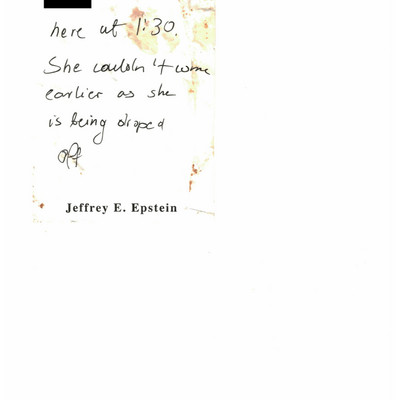 here at 1:30.
She couldn't come
earlier as she
is being droped
off
Jeffrey E. Epstein